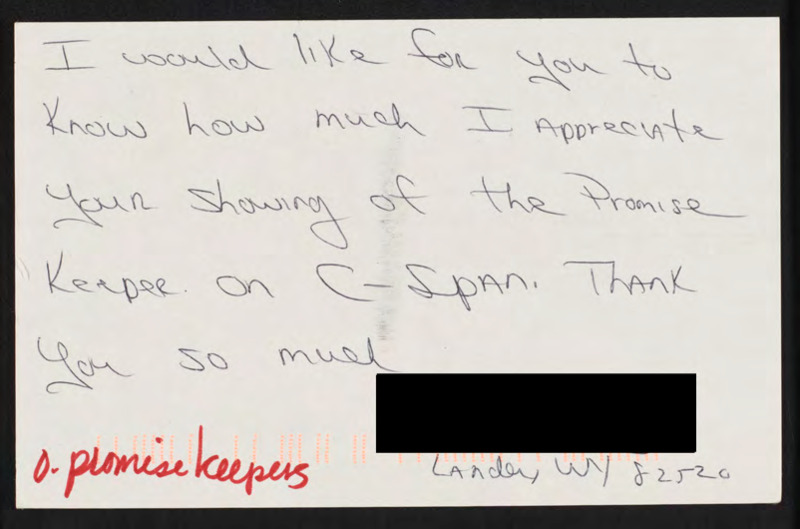 I would like for you to
Know how much I Appreciate
your showing of the Promise
Keeper. on C-Span. Thank
you so much
o. promise keepers
Lander, WY 82520